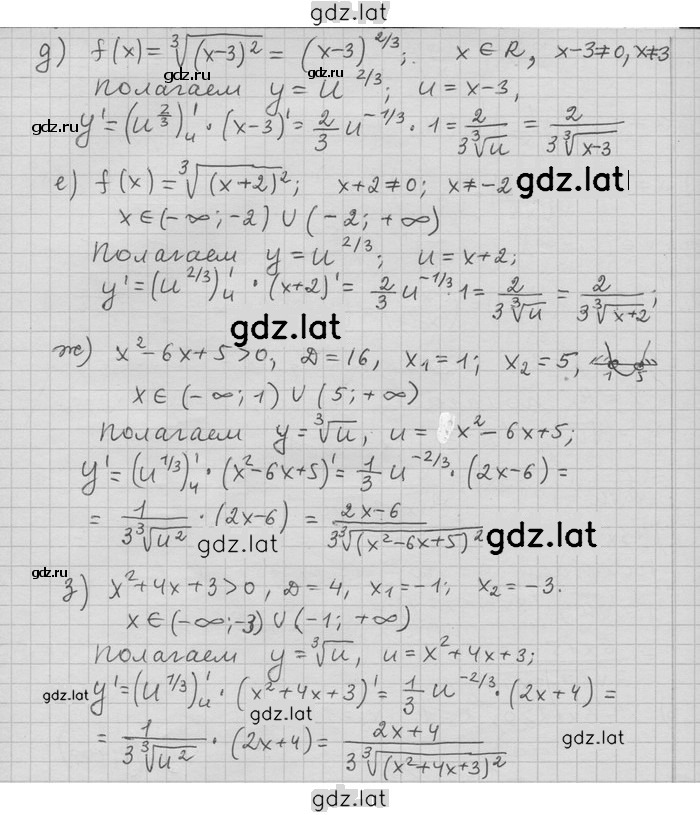 gdz.lat
д) f(x)=∛(x-3)² = (x-3)^2/3; x ∈ R, x-3≠0, x≠3
gdz.lat
Полагаем y=u^2/3; u=x-3,
gdz.ru
y'=(u^2/3)'u · (x-3)'= 2/3 u^-1/3 · 1= 2/3∛u = 2/3∛x-3
е) f(x)=∛(x+2)²; x+2≠0; x≠-2 gdz.lat
x∈(-∞;-2) ∪ (-2;+∞)
Полагаем y=u^2/3; u=x+2;
y'=(u^2/3)'u · (x+2)'= 2/3 u^-1/3 · 1= 2/3∛u = 2/3∛x+2;
gdz.lat
ж) x²-6x+5>0, D=16, x₁=1; x₂=5, 1 5
x∈(-∞;1) ∪ (5;+∞)
Полагаем y=∛u, u= x²-6x+5;
y'=(u^1/3)'u · (x²-6x+5)'= 1/3 u^-2/3 · (2x-6)=
= 1/3∛u² · (2x-6) = 2x-6/3∛(x²-6x+5)² gdz.lat
gdz.lat
gdz.ru
з) x²+4x+3>0, D=4, x₁=-1; x₂=-3.
x∈(-∞;-3) ∪ (-1;+∞)
Полагаем y=∛u, u=x²+4x+3;
gdz.lat y'=(u^1/3)'u · (x²+4x+3)'= 1/3 u^-2/3 · (2x+4)=
gdz.lat
= 1/3∛u² · (2x+4)= 2x+4/3∛(x²+4x+3)² gdz.lat
gdz.lat